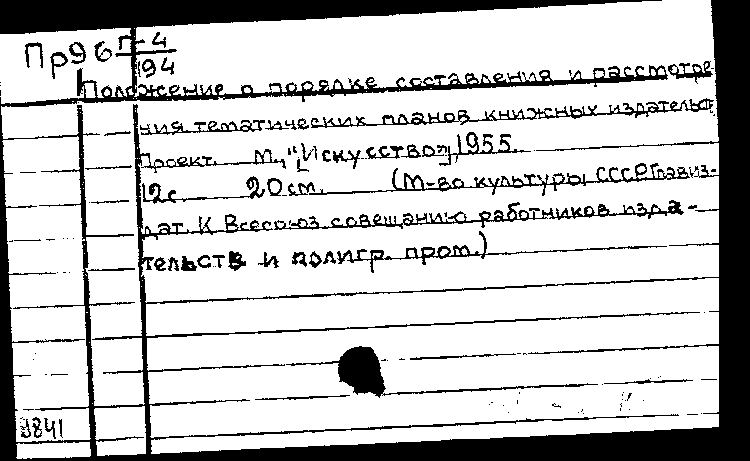 Пр96 П-4
194
Положение о порядке составления и рассмотре
ния тематических планов книжных издательст
Проект. М., "[Искусство]", 1955.
12с. 20см. (М-во культуры СССР. Главиз-
дат. К Всесоюз. совещанию работников изда-
тельств и полигр. пром.)
9841